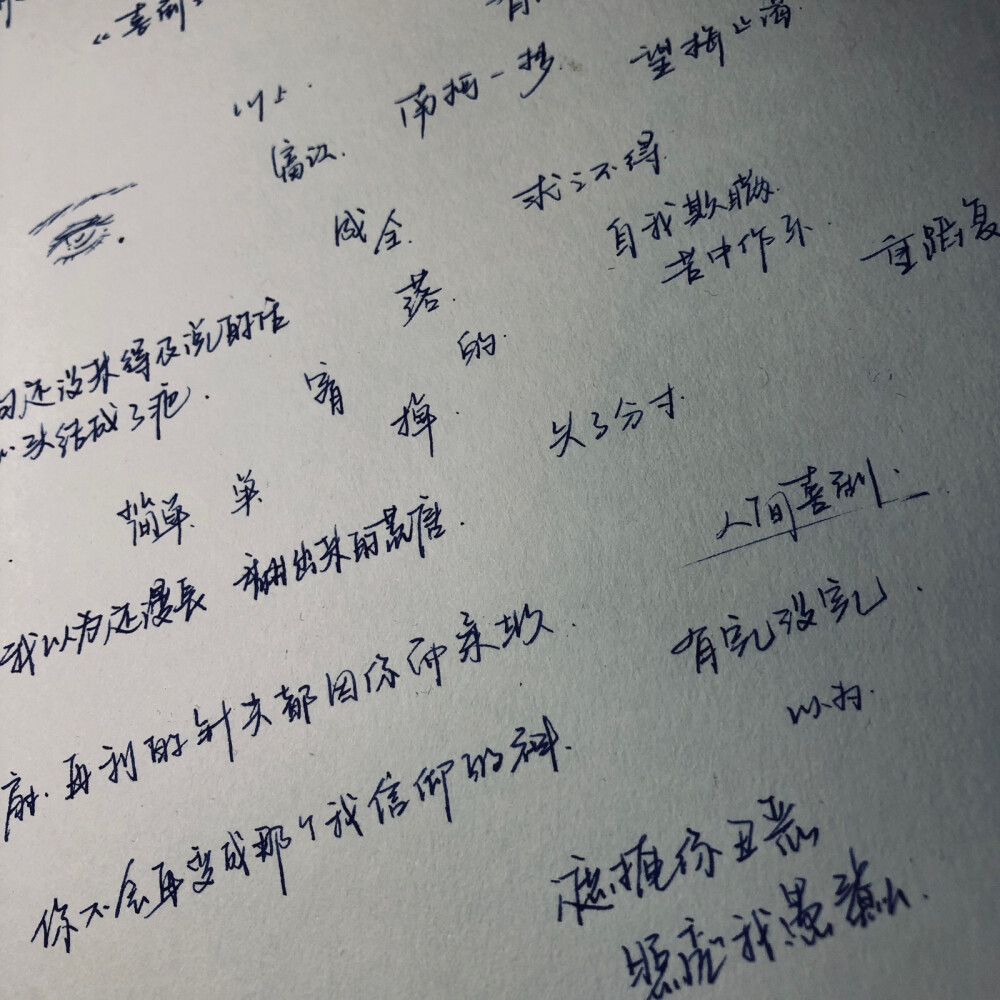 《喜剧
以上.
南柯一梦
望梅止渴
富江.
成全.
求之不得
自我欺瞒
苦中作乐.
重蹈覆
落.
还没来得及说的话
的.
来结成了疤.
宿
掉.
失了分寸.
简单、单
人间喜剧.
我以为还漫长 翻出来的荒唐.
有完没完.
再利的针头都因你而柔软.
以为.
你不会再变成那个我信仰的神.
遮掩你丑恶
照应我愚蠢.